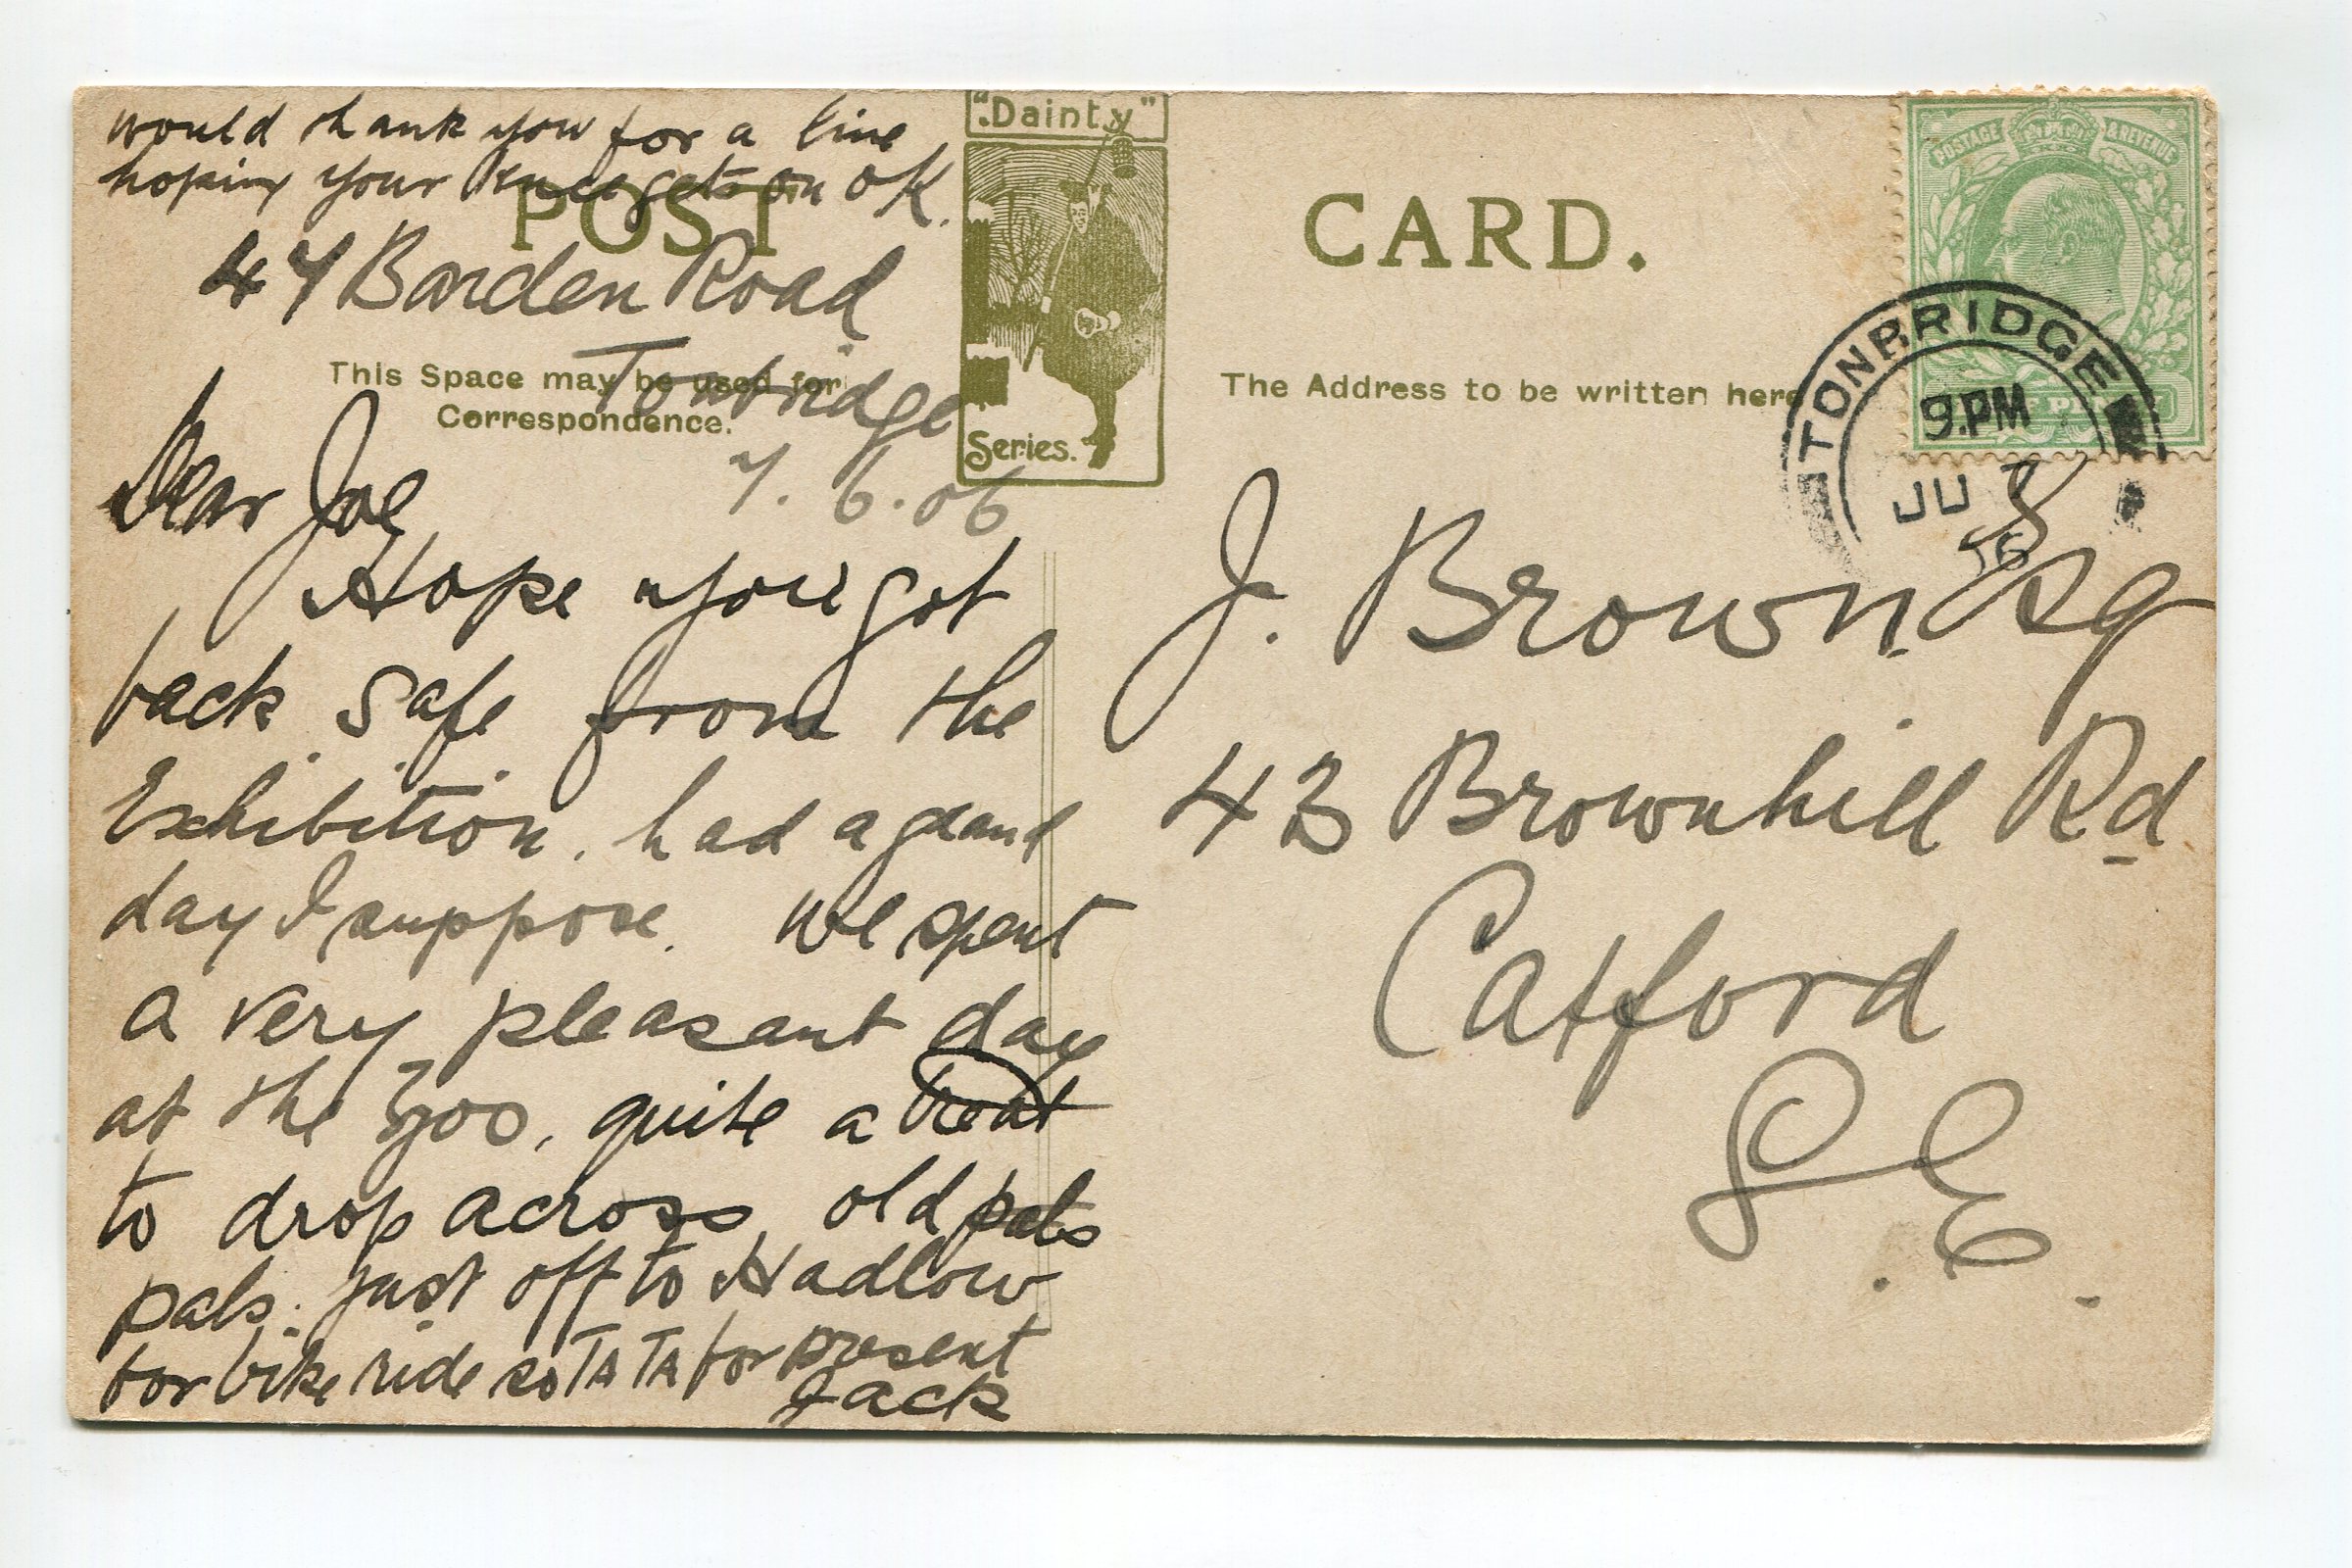 would thank you for a line
hoping your knee gets on OK.
POST CARD.
"Dainty"
Series.
47 Barden Road
Tonbridge
7.6.06
This Space may be used for
Correspondence.
The Address to be written here
POSTAGE & REVENUE
TONBRIDGE
9.PM
JU 7
06
Dear Joe
Hope you got
back safe from the
Exhibition. had a grand
day I suppose. We spent
a very pleasant day
at the Zoo, quite a treat
to drop across old pals
pals. just off to Hadlow
for bike ride so TA TA for present
Jack
J. Brown Esq
43 Brownhill Rd
Catford
S.E.